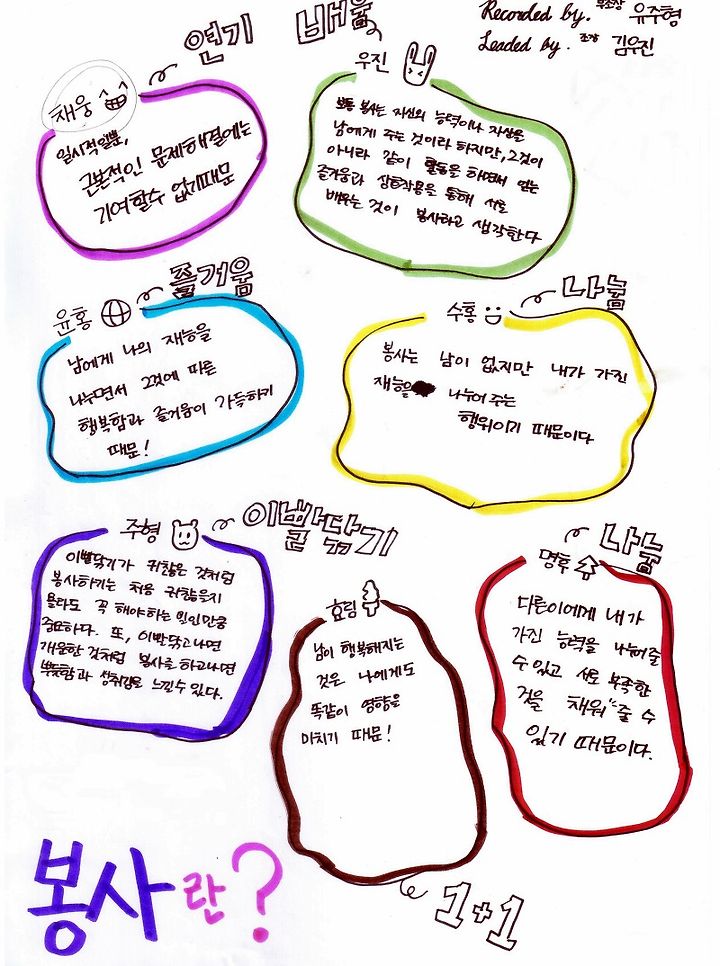 Recorded by. 부조장 유주형
Leaded by. 조장 김유진
연기
채웅
일시적일뿐,
근본적인 문제해결에는
기여할수 없기때문
배움
우진
보통 봉사는 자신의 능력이나 자산을
남에게 주는 것이라 하지만, 그것이
아니라 같이 활동을 하면서 얻는
즐거움과 상호작용을 통해 서로
배우는 것이 봉사라고 생각한다
즐거움
윤홍
남에게 나의 재능을
나누면서 그것에 따른
행복함과 즐거움이 가득하기
때문!
나눔
수홍
봉사는 남이 없지만 내가 가진
재능을 나누어 주는
행위이기 때문이다
이빨닦기
주형
이빨닦기가 귀찮은 것처럼
봉사하기는 처음 귀찮을지
몰라도 꼭 해야하는 일인만큼
중요하다. 또, 이빨닦고나면
개운한 것처럼 봉사를 하고나면
뿌듯함과 성취감을 느낄수 있다.
효림
남이 행복해지는
것은 나에게도
똑같이 영향을
미치기 때문!
1+1
나눔
명후
다른이에게 내가
가진 능력을 나눠줄
수 있고 서로 부족한
것을 채워 줄 수
있기 때문이다.
봉사란?